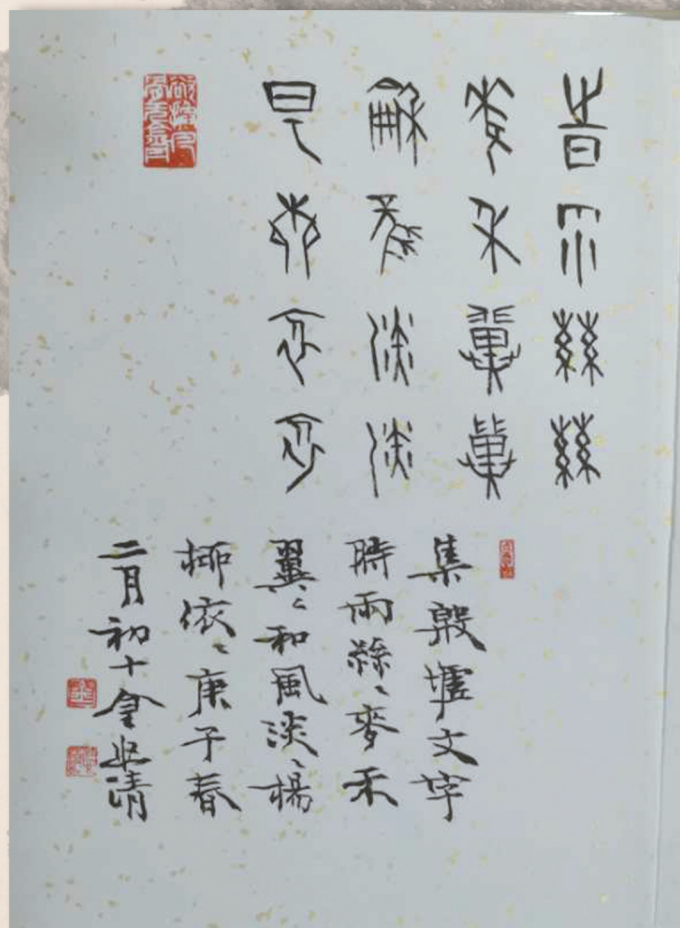 時雨絲絲
麥禾翼翼
和風淡淡
楊柳依依
集殷墟文字
時雨絲〻麥禾
翼〻和風淡〻楊
柳依〻庚子春
二月初十金清